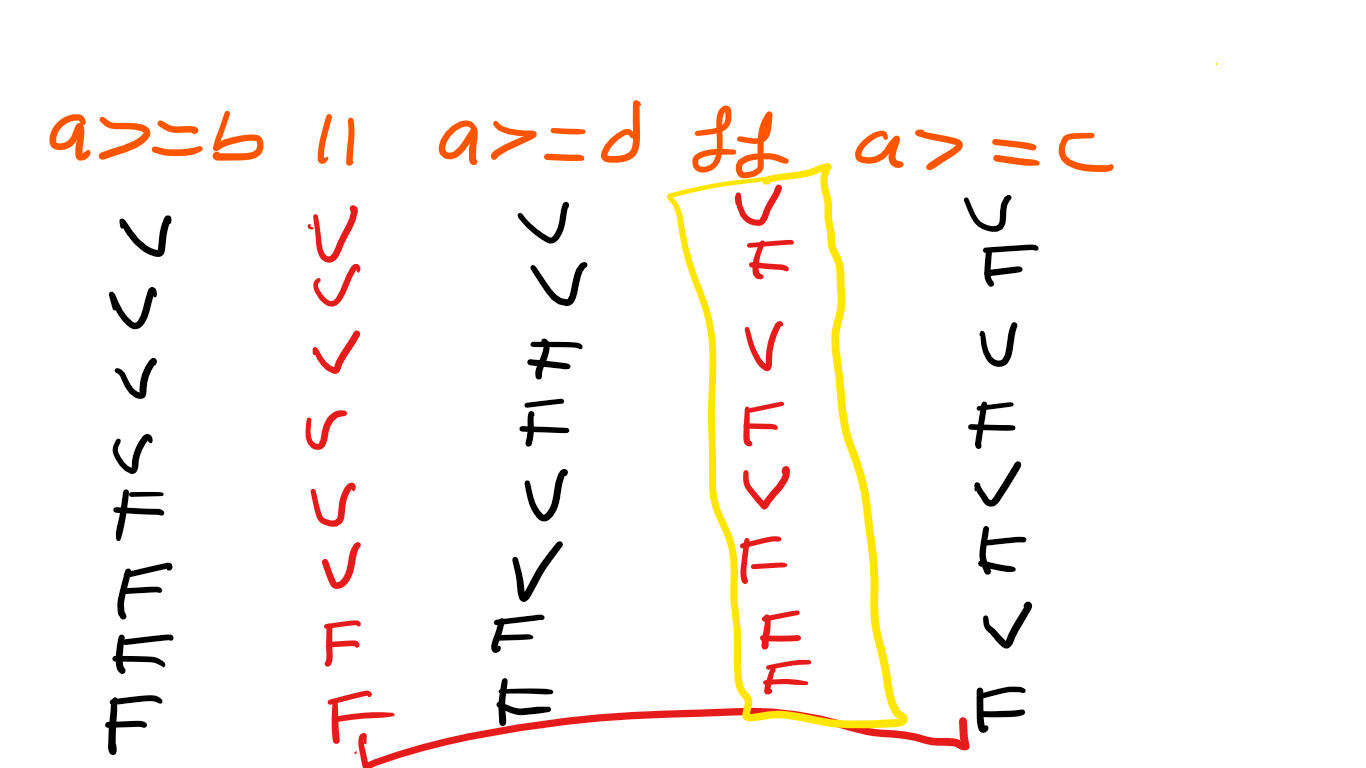 a>=b || a>=d && a>=c
V V V V V
V V V F F
V V F V V
V V F F F
F V V V V
F V V F F
F F F F V
F F F F F